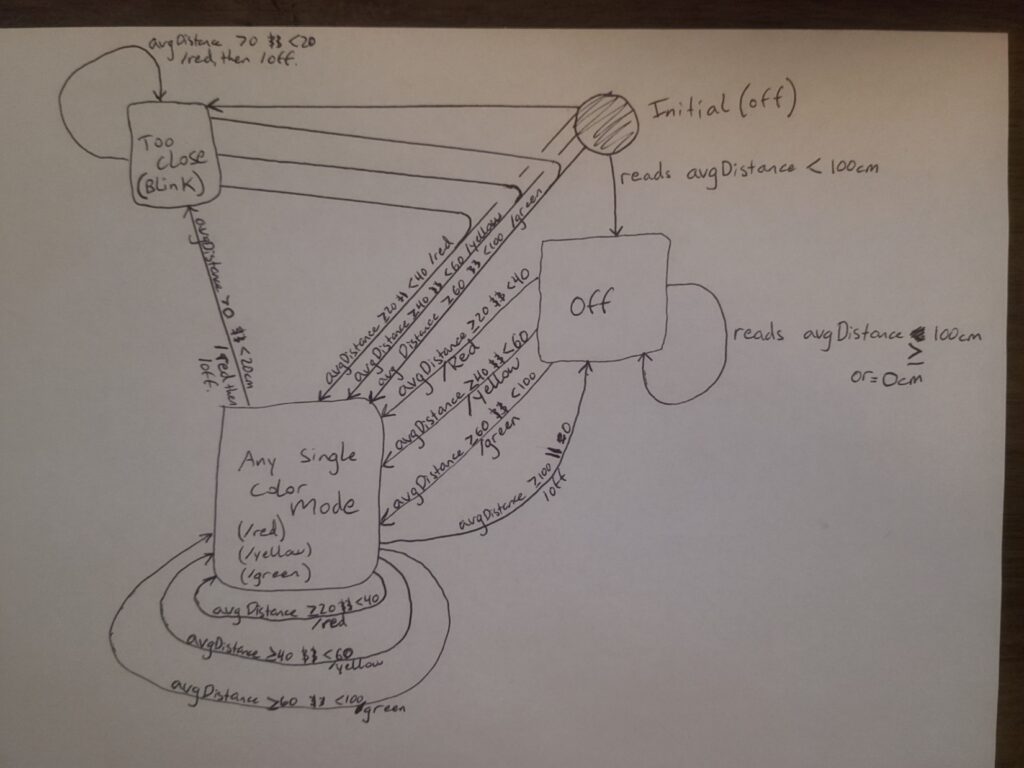 avgDistance >0 $$ <20
/red, then /off.
Initial (off)
Too
close
(Blink)
reads avgDistance < 100cm
avgDistance ≥20 $$ <40 /red
avgDistance ≥40 $$ <60 /yellow
avg Distance ≥60 $$ <100 /green
avgDistance ≥20 $$ <40
/Red
off
reads avgDistance ≥ 100cm
or = 0cm
avgDistance >0 $$ <20cm
/red, then
/off.
avgDistance ≥40 $$ <60
/yellow
avgDistance ≥60 $$ <100
/green
avgDistance ≥100 ||
/off
Any Single
Color
Mode
(/red)
(/yellow)
(/green)
avgDistance ≥20 $$ <40
/red
avgDistance ≥40 $$ <60
/yellow
avgDistance ≥60 $$ <100
/green